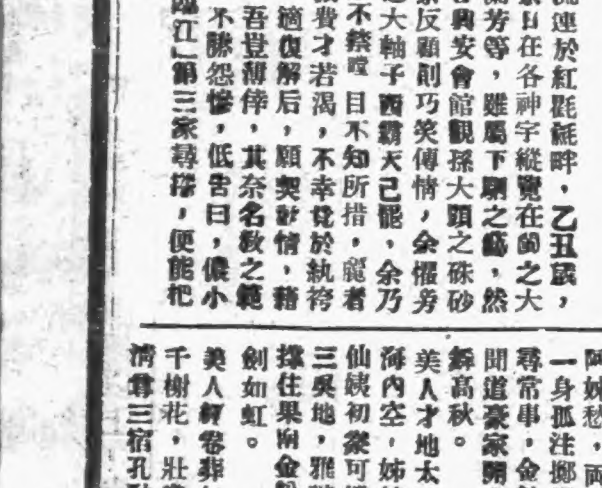 流連於紅氍毹畔，乙丑歲，
日在各神宇縱覽在師之大
芳等，雖屬下駟之，然
興安會館觀孫大頭之硃砂
反顧則巧笑傳情，余懼旁
大軸子西霸天已罷，余乃
不禁瞠目不知所措，麗者
費才若渴，不幸竟於紈袴
邂后，願契情，藉
吾豈薄倖，其奈名教之範
不勝怨慘，低告曰，儂小
臨江」第三家尋，便能把
阿姊愁，兩
一身孤注擲
尋常事，金
聞道豪家開
高秋。
美人才地太
海內空，姊
仙姨初可
三吳地，雅
住果南金
劍如虹。
美人經卷葬
千樹花，壯
清尋三宿孔